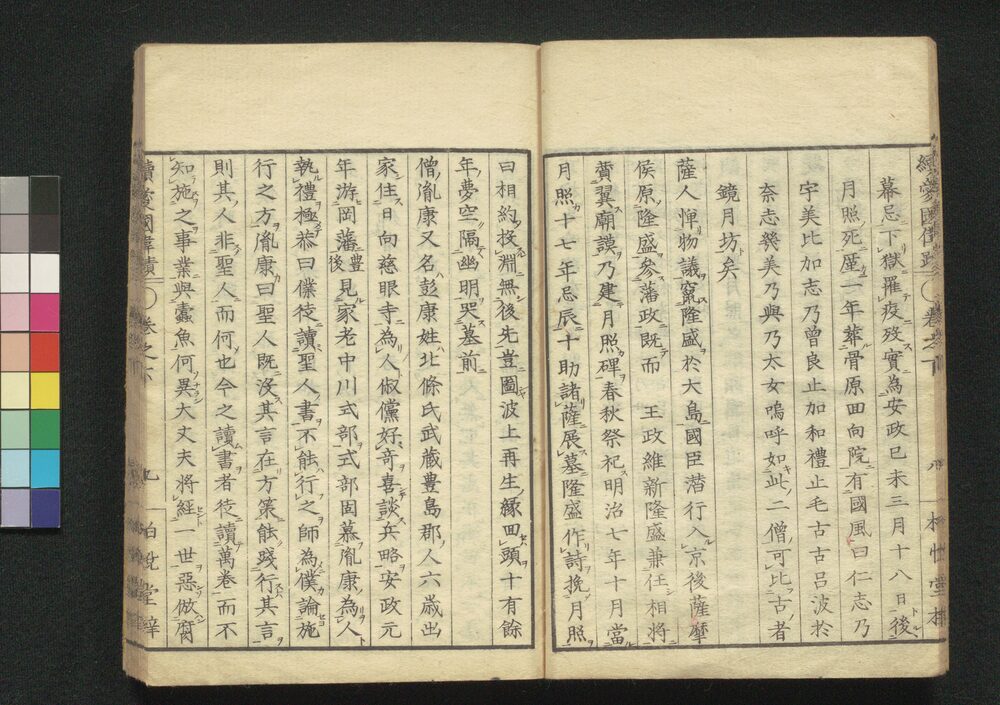 幕忌下獄羅疫歿實為安政己未三月十八日後
月照死厪一年葬骨原回向院有國風曰仁志乃
宇美比加志乃曾良止加和禮止毛古古呂波於
奈志癸美乃與乃太女嗚呼如此二僧可比古者
鏡月坊矣
薩人憚物議竄隆盛於大島國臣潜行入京後薩摩
侯原隆盛參藩政既而　王政維新隆盛兼任相將
賛翼廟謨乃建月照碑春秋祭祀明治七年十月當
月照十七年忌辰十助諸薩展墓隆盛作詩挽月照
曰相約投淵無後先豈圖波上再生緣回頭十有餘
年夢空隔幽明哭墓前
僧胤康又名彭康姓北條氏武藏豊島郡人六歳出
家住日向慈眼寺為人俶儻好奇喜談兵略安政元
年游岡藩豊後見家老中川式部式部固慕胤康為人
執禮極恭曰僕徒讀聖人書不能行之師為僕論施
行之方胤康曰聖人既沒其言在方策能踐行其言
則其人非聖人而何也今之讀書者徒讀萬卷而不
知施之事業與蠹魚何異大丈夫將經一世惡倣腐